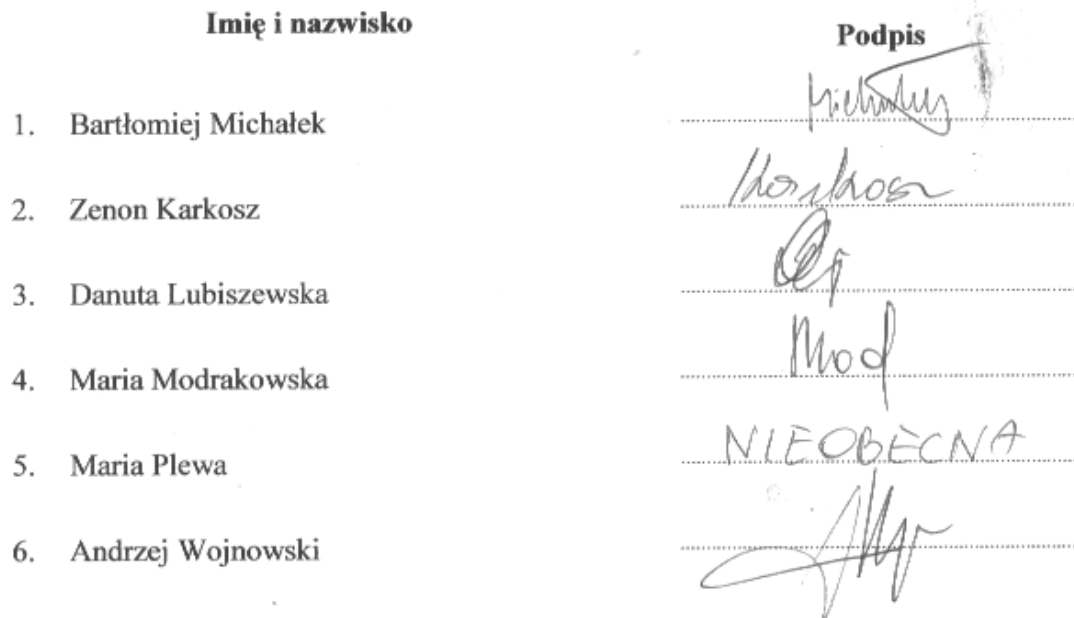 Imię i nazwisko Podpis
1. Bartłomiej Michałek
2. Zenon Karkosz Karkosz
3. Danuta Lubiszewska
4. Maria Modrakowska Mod
5. Maria Plewa NIEOBECNA
6. Andrzej Wojnowski